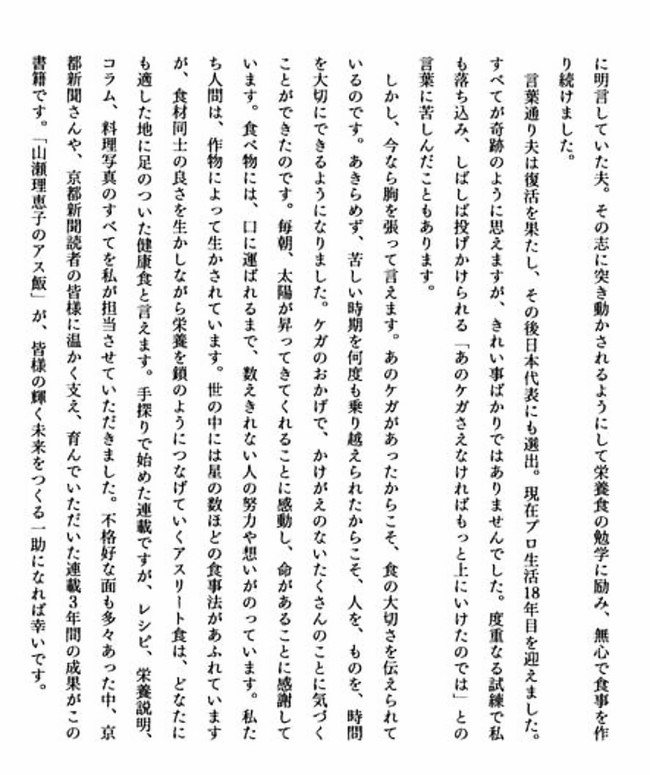 に明言していた夫。その志に突き動かされるようにして栄養食の勉学に励み、無心で食事を作
り続けました。
言葉通り夫は復活を果たし、その後日本代表にも選出。現在プロ生活18年目を迎えました。
すべてが奇跡のように思えますが、きれい事ばかりではありませんでした。度重なる試練で私
も落ち込み、しばしば投げかけられる「あのケガさえなければもっと上にいけたのでは」との
言葉に苦しんだこともあります。
しかし、今なら胸を張って言えます。あのケガがあったからこそ、食の大切さを伝えられて
いるのです。あきらめず、苦しい時期を何度も乗り越えられたからこそ、人を、ものを、時間
を大切にできるようになりました。ケガのおかげで、かけがえのないたくさんのことに気づく
ことができたのです。毎朝、太陽が昇ってきてくれることに感動し、命があることに感謝して
います。食べ物には、口に運ばれるまで、数えきれない人の努力や想いがのっています。私た
ち人間は、作物によって生かされています。世の中には星の数ほどの食事法があふれています
が、食材同士の良さを生かしながら栄養を鎖のようにつなげていくアスリート食は、どなたに
も適した地に足のついた健康食と言えます。手探りで始めた連載ですが、レシピ、栄養説明、
コラム、料理写真のすべてを私が担当させていただきました。不格好な面も多々あった中、京
都新聞さんや、京都新聞読者の皆様に温かく支え、育んでいただいた連載3年間の成果がこの
書籍です。「山瀬理恵子のアス飯」が、皆様の輝く未来をつくる一助になれば幸いです。